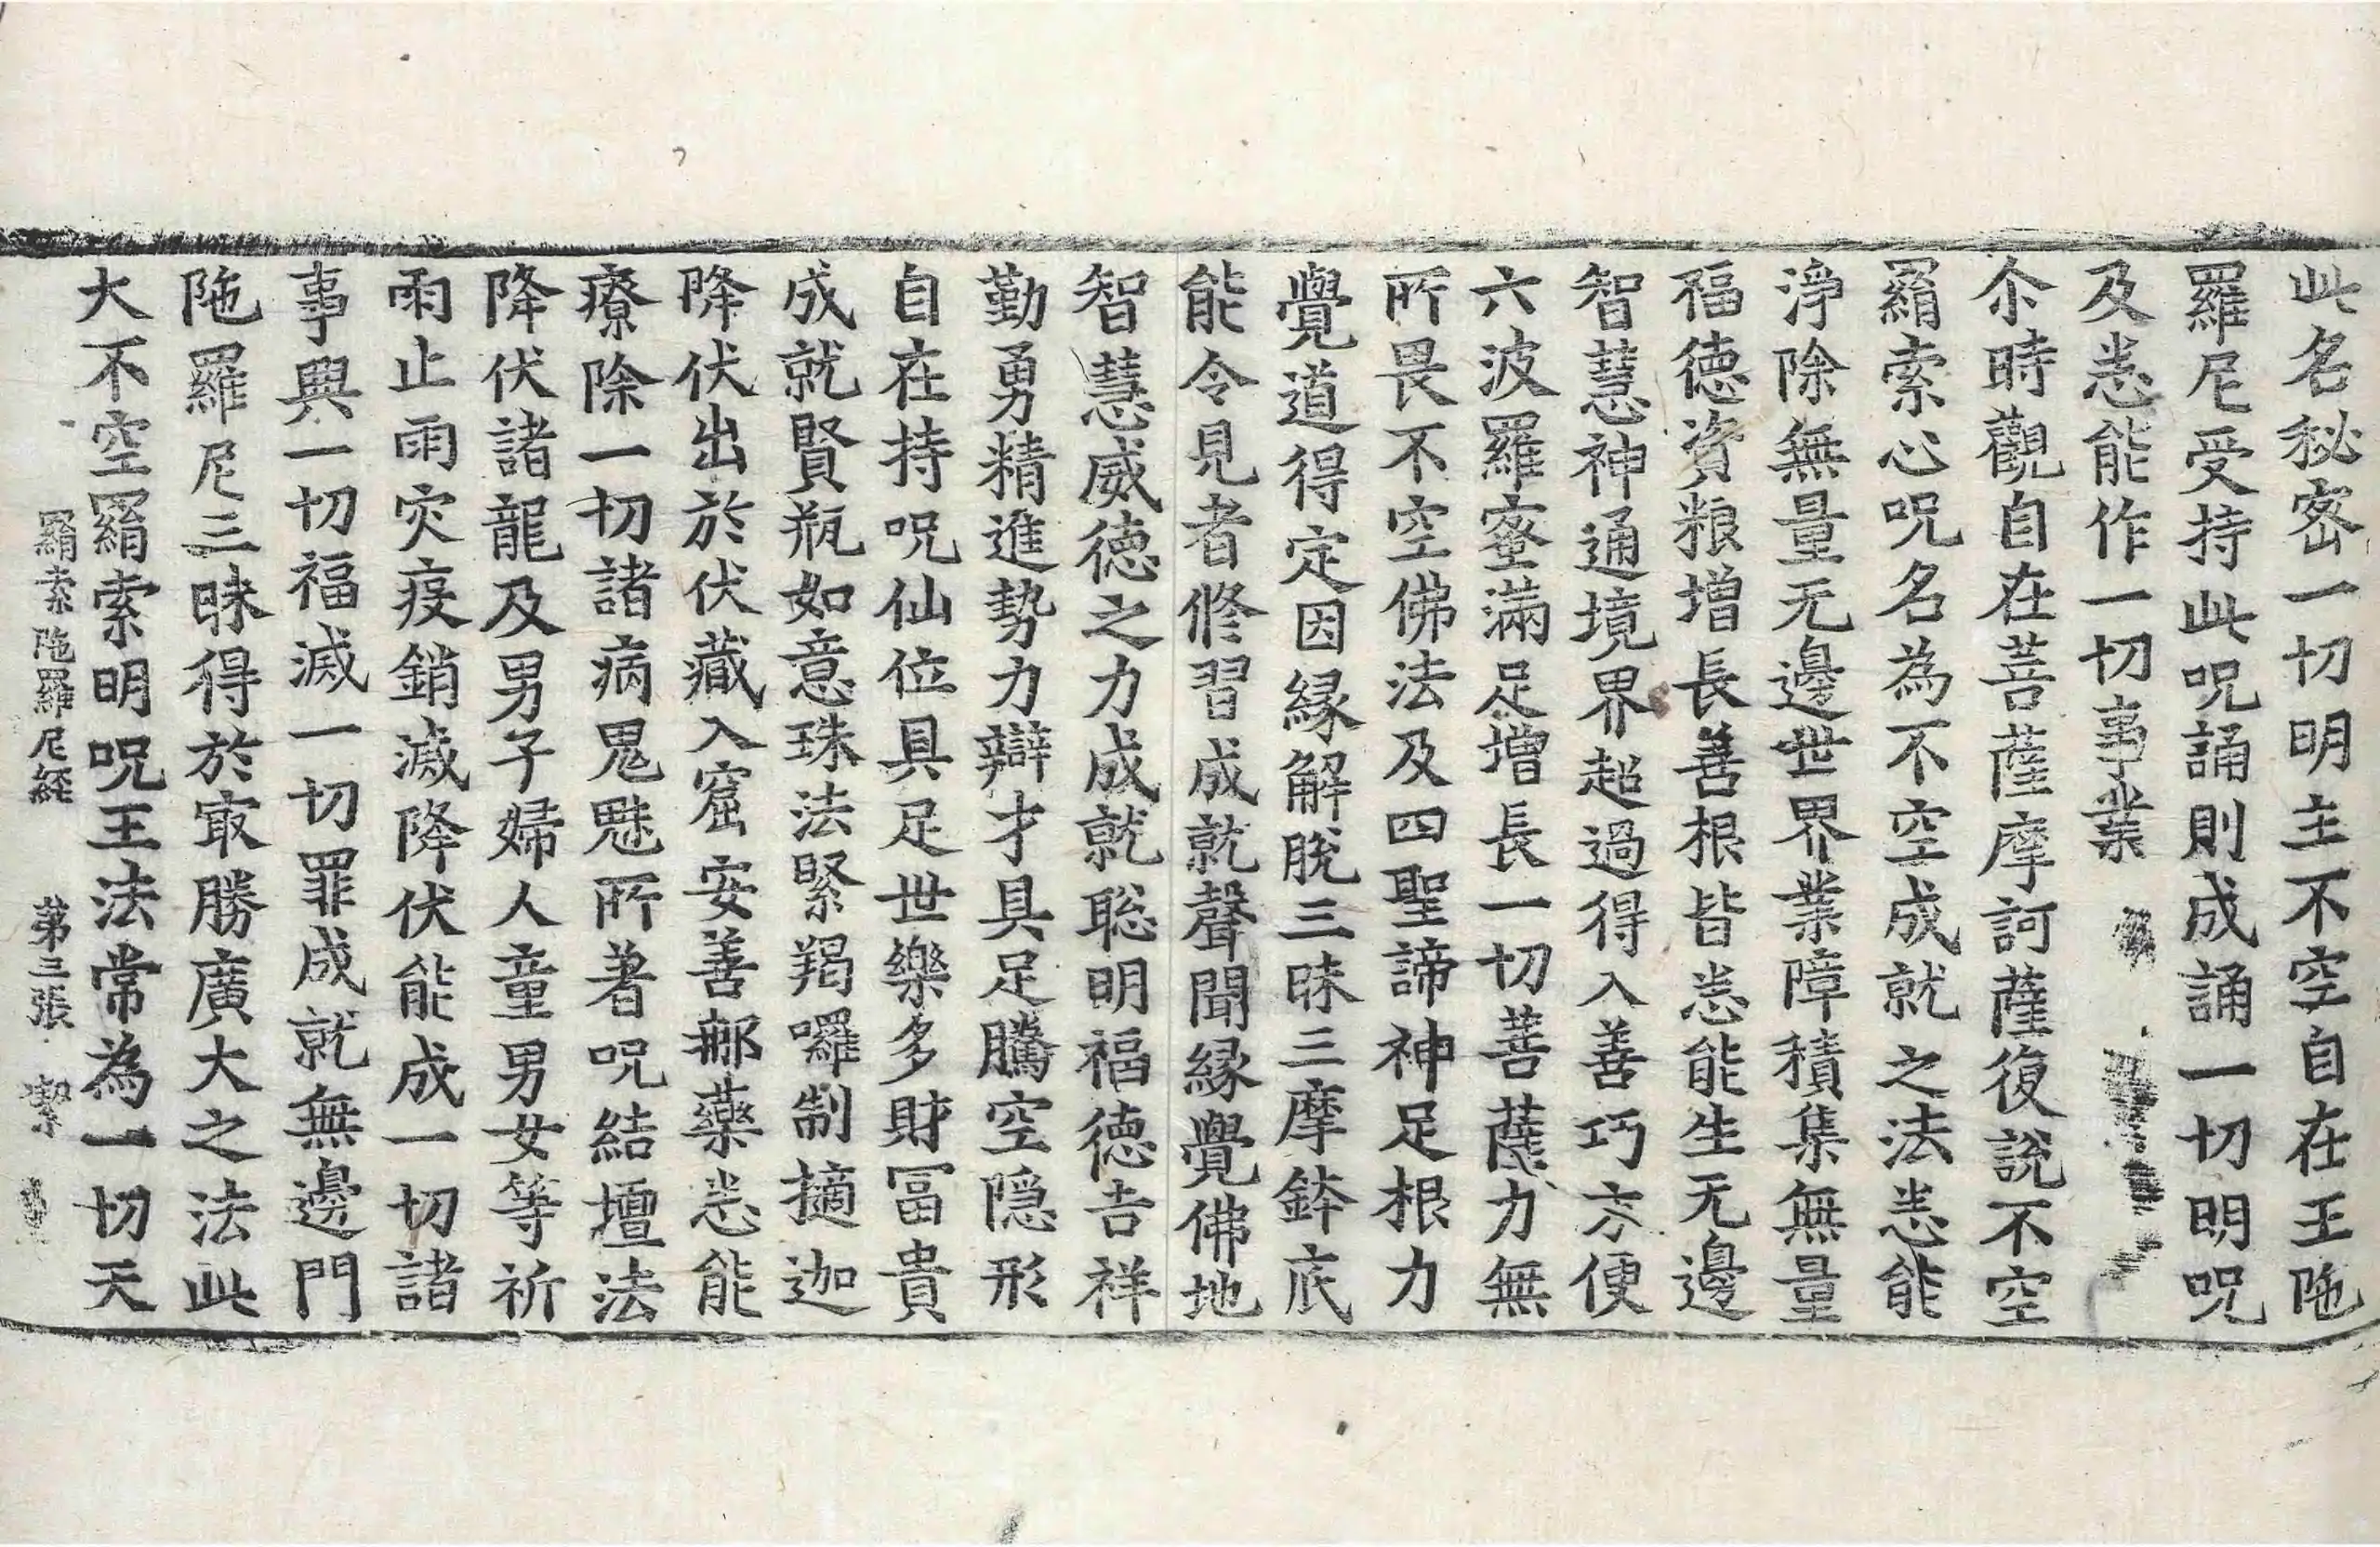 此名秘密一切明主不空自在王陁
羅尼受持此呪誦則成誦一切明呪
及悉能作一切事業
尒時觀自在菩薩摩訶薩復說不空
羂索心呪名為不空成就之法悉能
淨除無量无邊世界業障積集無量
福德資粮增長善根皆悉能生无邊
智慧神通境界超過得入善巧方便
六波羅蜜滿足增長一切菩薩力無
所畏不空佛法及四聖諦神足根力
覺道得定因緣解脫三昧三摩鉢底
能令見者修習成就聲聞緣覺佛地
智慧威德之力成就聡明福德吉祥
勤勇精進勢力辯才具足騰空隱形
自在持呪仙位具足世樂多財冨貴
成就賢瓶如意珠法緊羯囉制擿迦
降伏出於伏藏入窟安善那藥悉能
療除一切諸病鬼魅所著呪結壇法
降伏諸龍及男子婦人童男女等祈
雨止雨灾疫銷滅降伏能成一切諸
事興一切福滅一切罪成就無邊門
陁羅尼三昧得於冣勝廣大之法此
大不空羂索明呪王法常為一切天
羂索陁羅尼經 第三張 潔